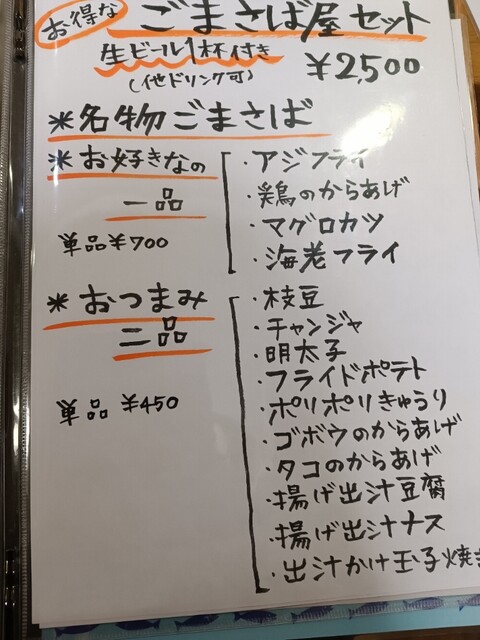 お得な ごまさば屋セット
生ビール1杯付き
(他ドリンク可)
¥2,500
*名物ごまさば
*お好きなの
一品
単品¥700
・アジフライ
・鶏のからあげ
・マグロカツ
・海老フライ
*おつまみ
二品
単品 ¥450
・枝豆
・チャンジャ
・明太子
・フライドポテト
・ポリポリきゅうり
・ゴボウのからあげ
・タコのからあげ
・揚げ出汁豆腐
・揚げ出汁ナス
・出汁かけ玉子焼き